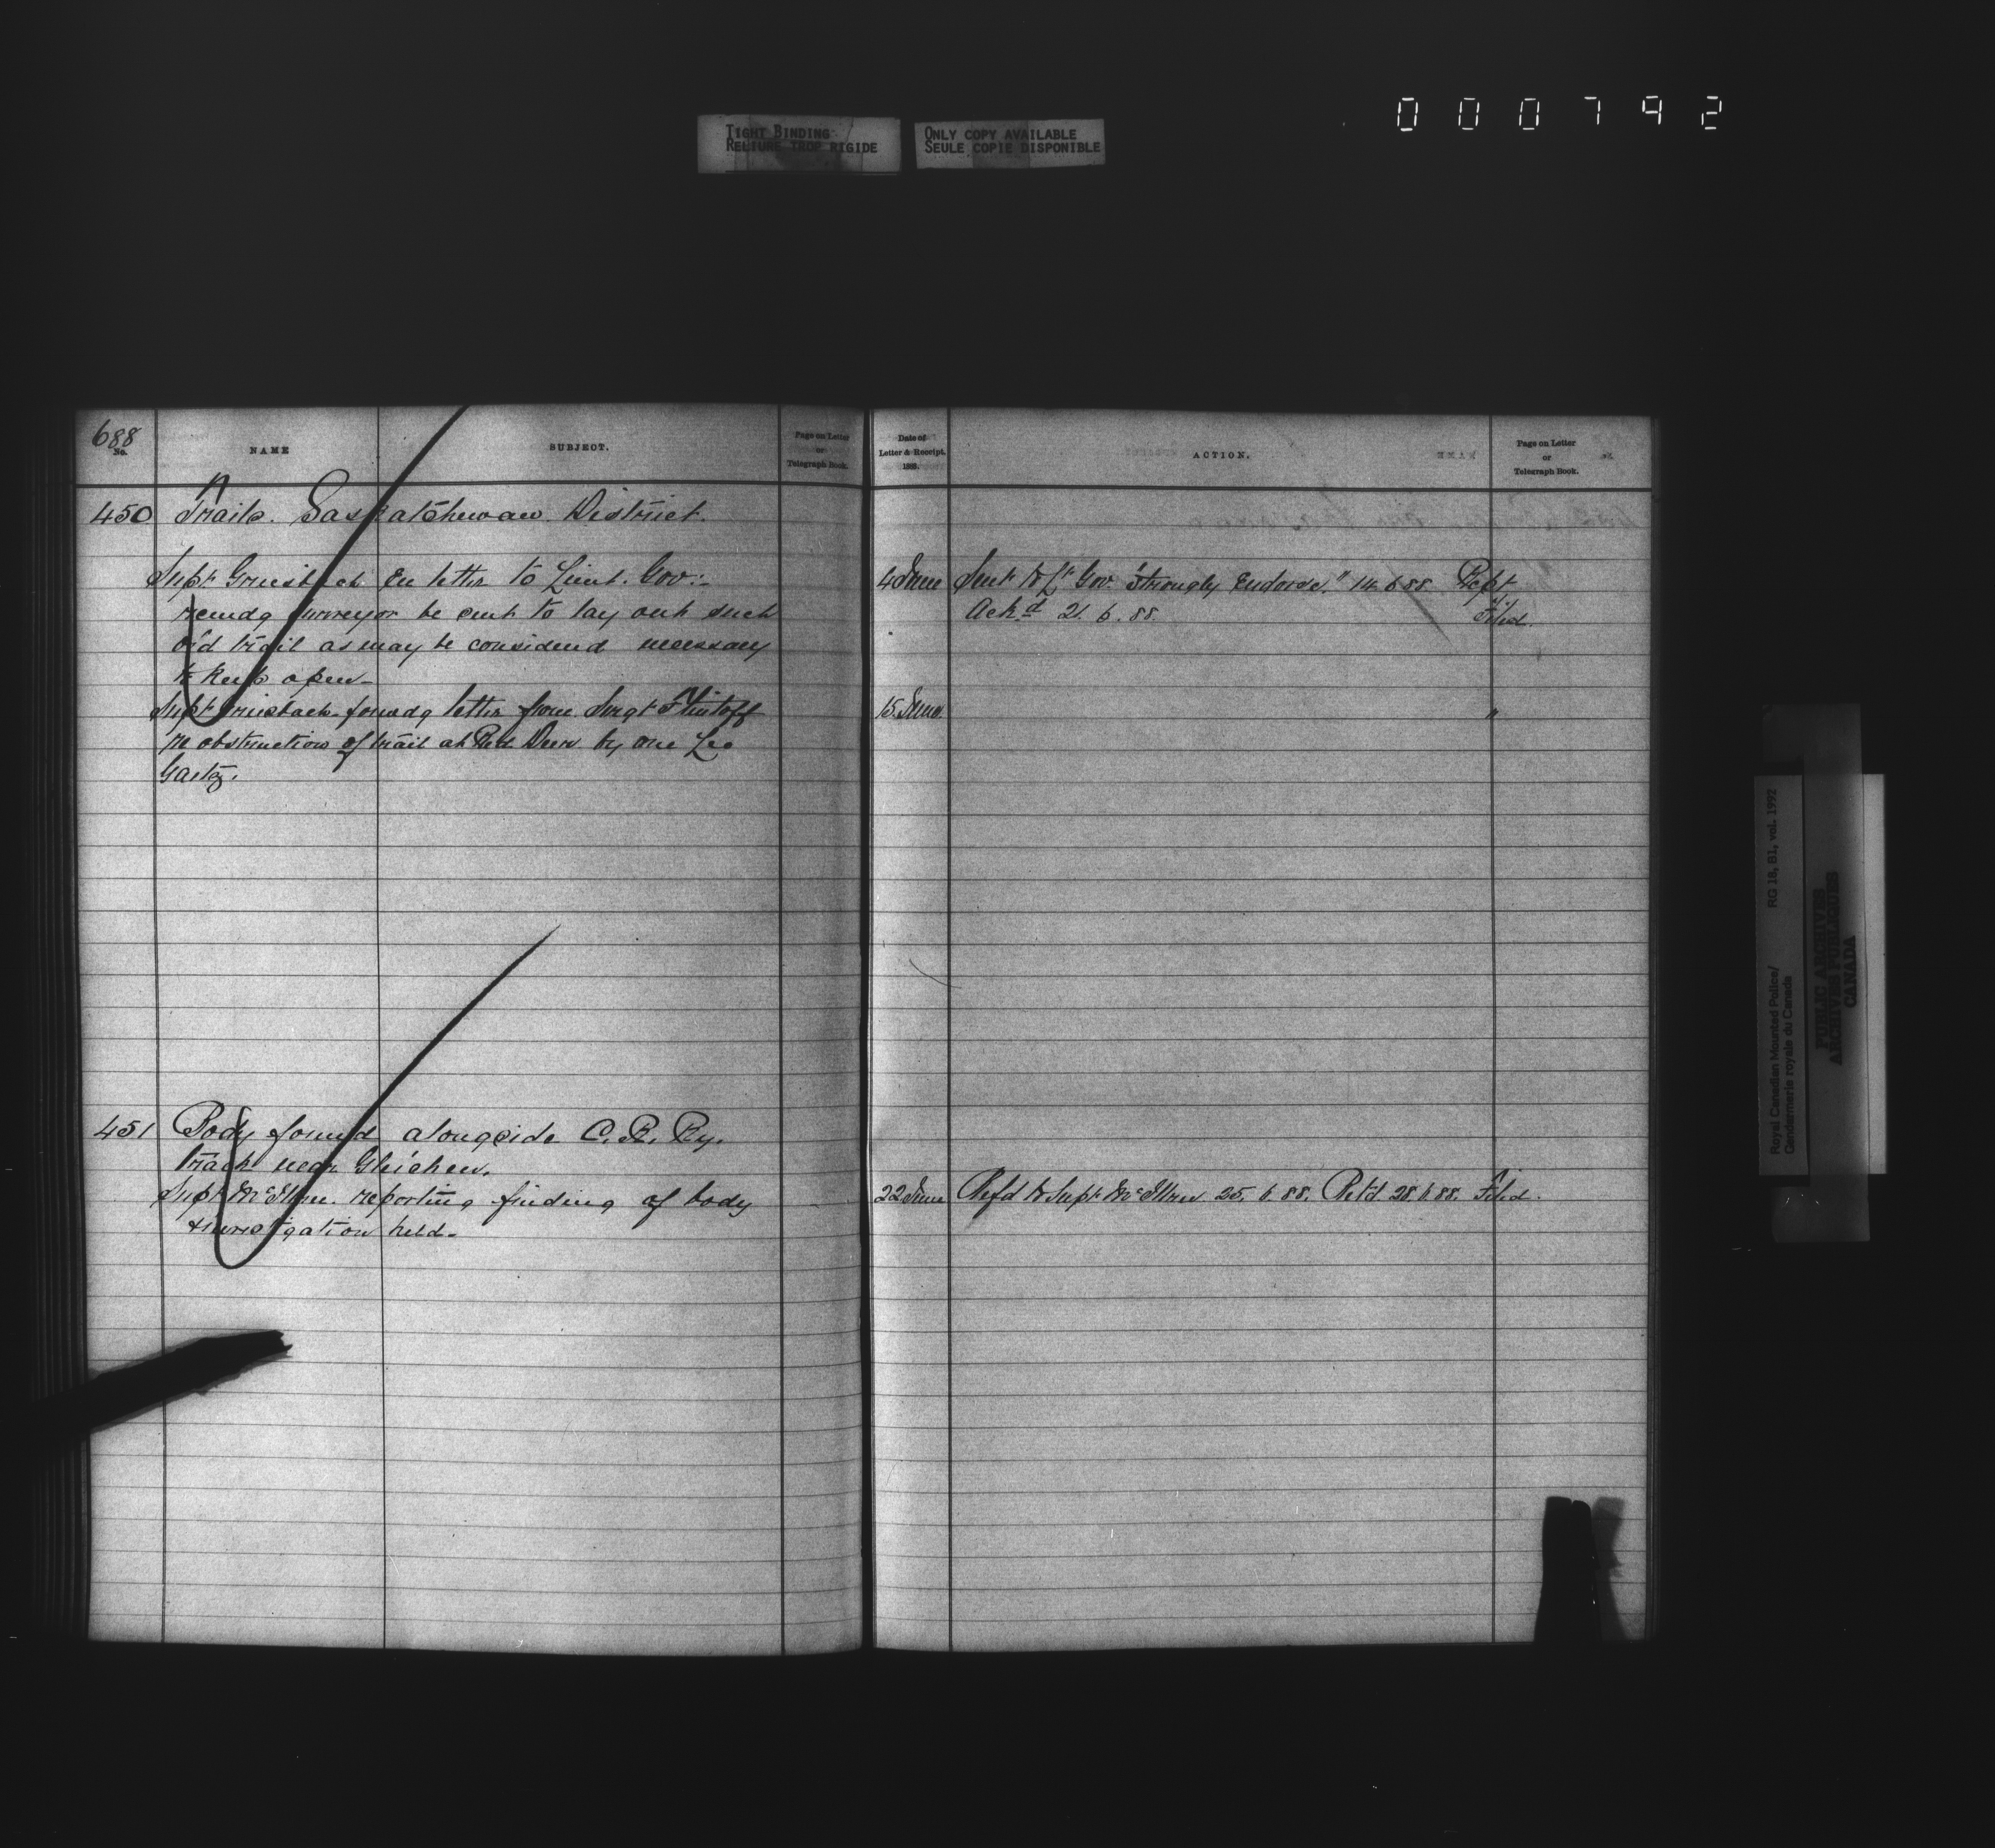 000792
TIGHT BINDING
RELIURE TROP RIGIDE
ONLY COPY AVAILABLE
SEULE COPIE DISPONIBLE
688
No.
NAME
SUBJECT.
Page on Letter
or
Telegraph Book.
Date of
Letter & Receipt.
188 .
ACTION.
Page on Letter
or
Telegraph Book.
450 Trails. Saskatchewan District.
Supt Griesbach En letter to Lieut. Gov:-
recmdg surveyor be sent to lay out such
old trail as may be considered necessary
to keep open-
4 June Sent to Lt Gov. "Strongly Endorse." 14.6.88. Rept
Ackd 21.6.88. Filed.
Supt Griesbach forwdg letter from Sergt Flintoff
re obstruction of trail at Red Deer by one Leo
Gaetz.
15 June "
451 Body found alongside C.P. Ry.
track near Gleichen.
Supt McIllree reporting finding of body
& investigation held-
22 June Refd to Supt McIllree 25.6.88. Retd 28.6.88. Filed.
Royal Canadian Mounted Police/
Gendarmerie royale du Canada
RG 18, B1, vol. 1992
PUBLIC ARCHIVES
ARCHIVES PUBLIQUES
CANADA